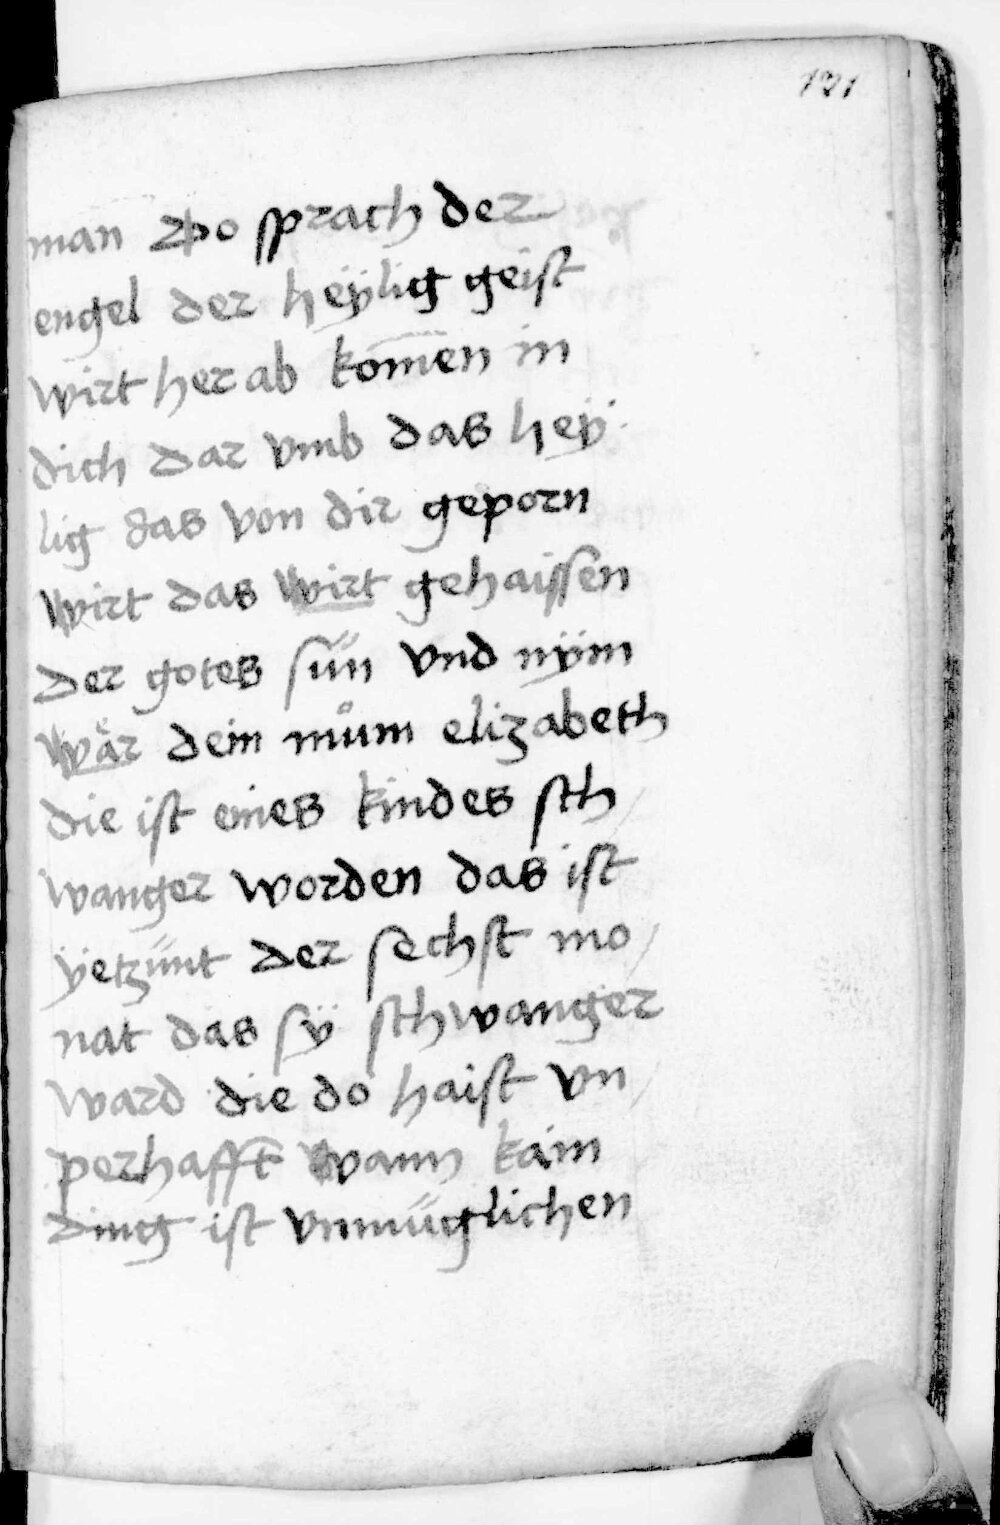 121
man Do sprach der
engel der heÿlig geist
wirt her ab komen in
dich dar vmb das heÿ
lig das von dir geporn
wirt das wirt gehaissen
der gotes sün vnd nÿm
wär dein mům elizabeth
die ist eines kindes sch/
wanger worden das ist
ÿetzünt der sechst mo/
nat das sÿ schwanger
ward die do haist vn/
perhafft wann kain
ding ist vnmüglichen